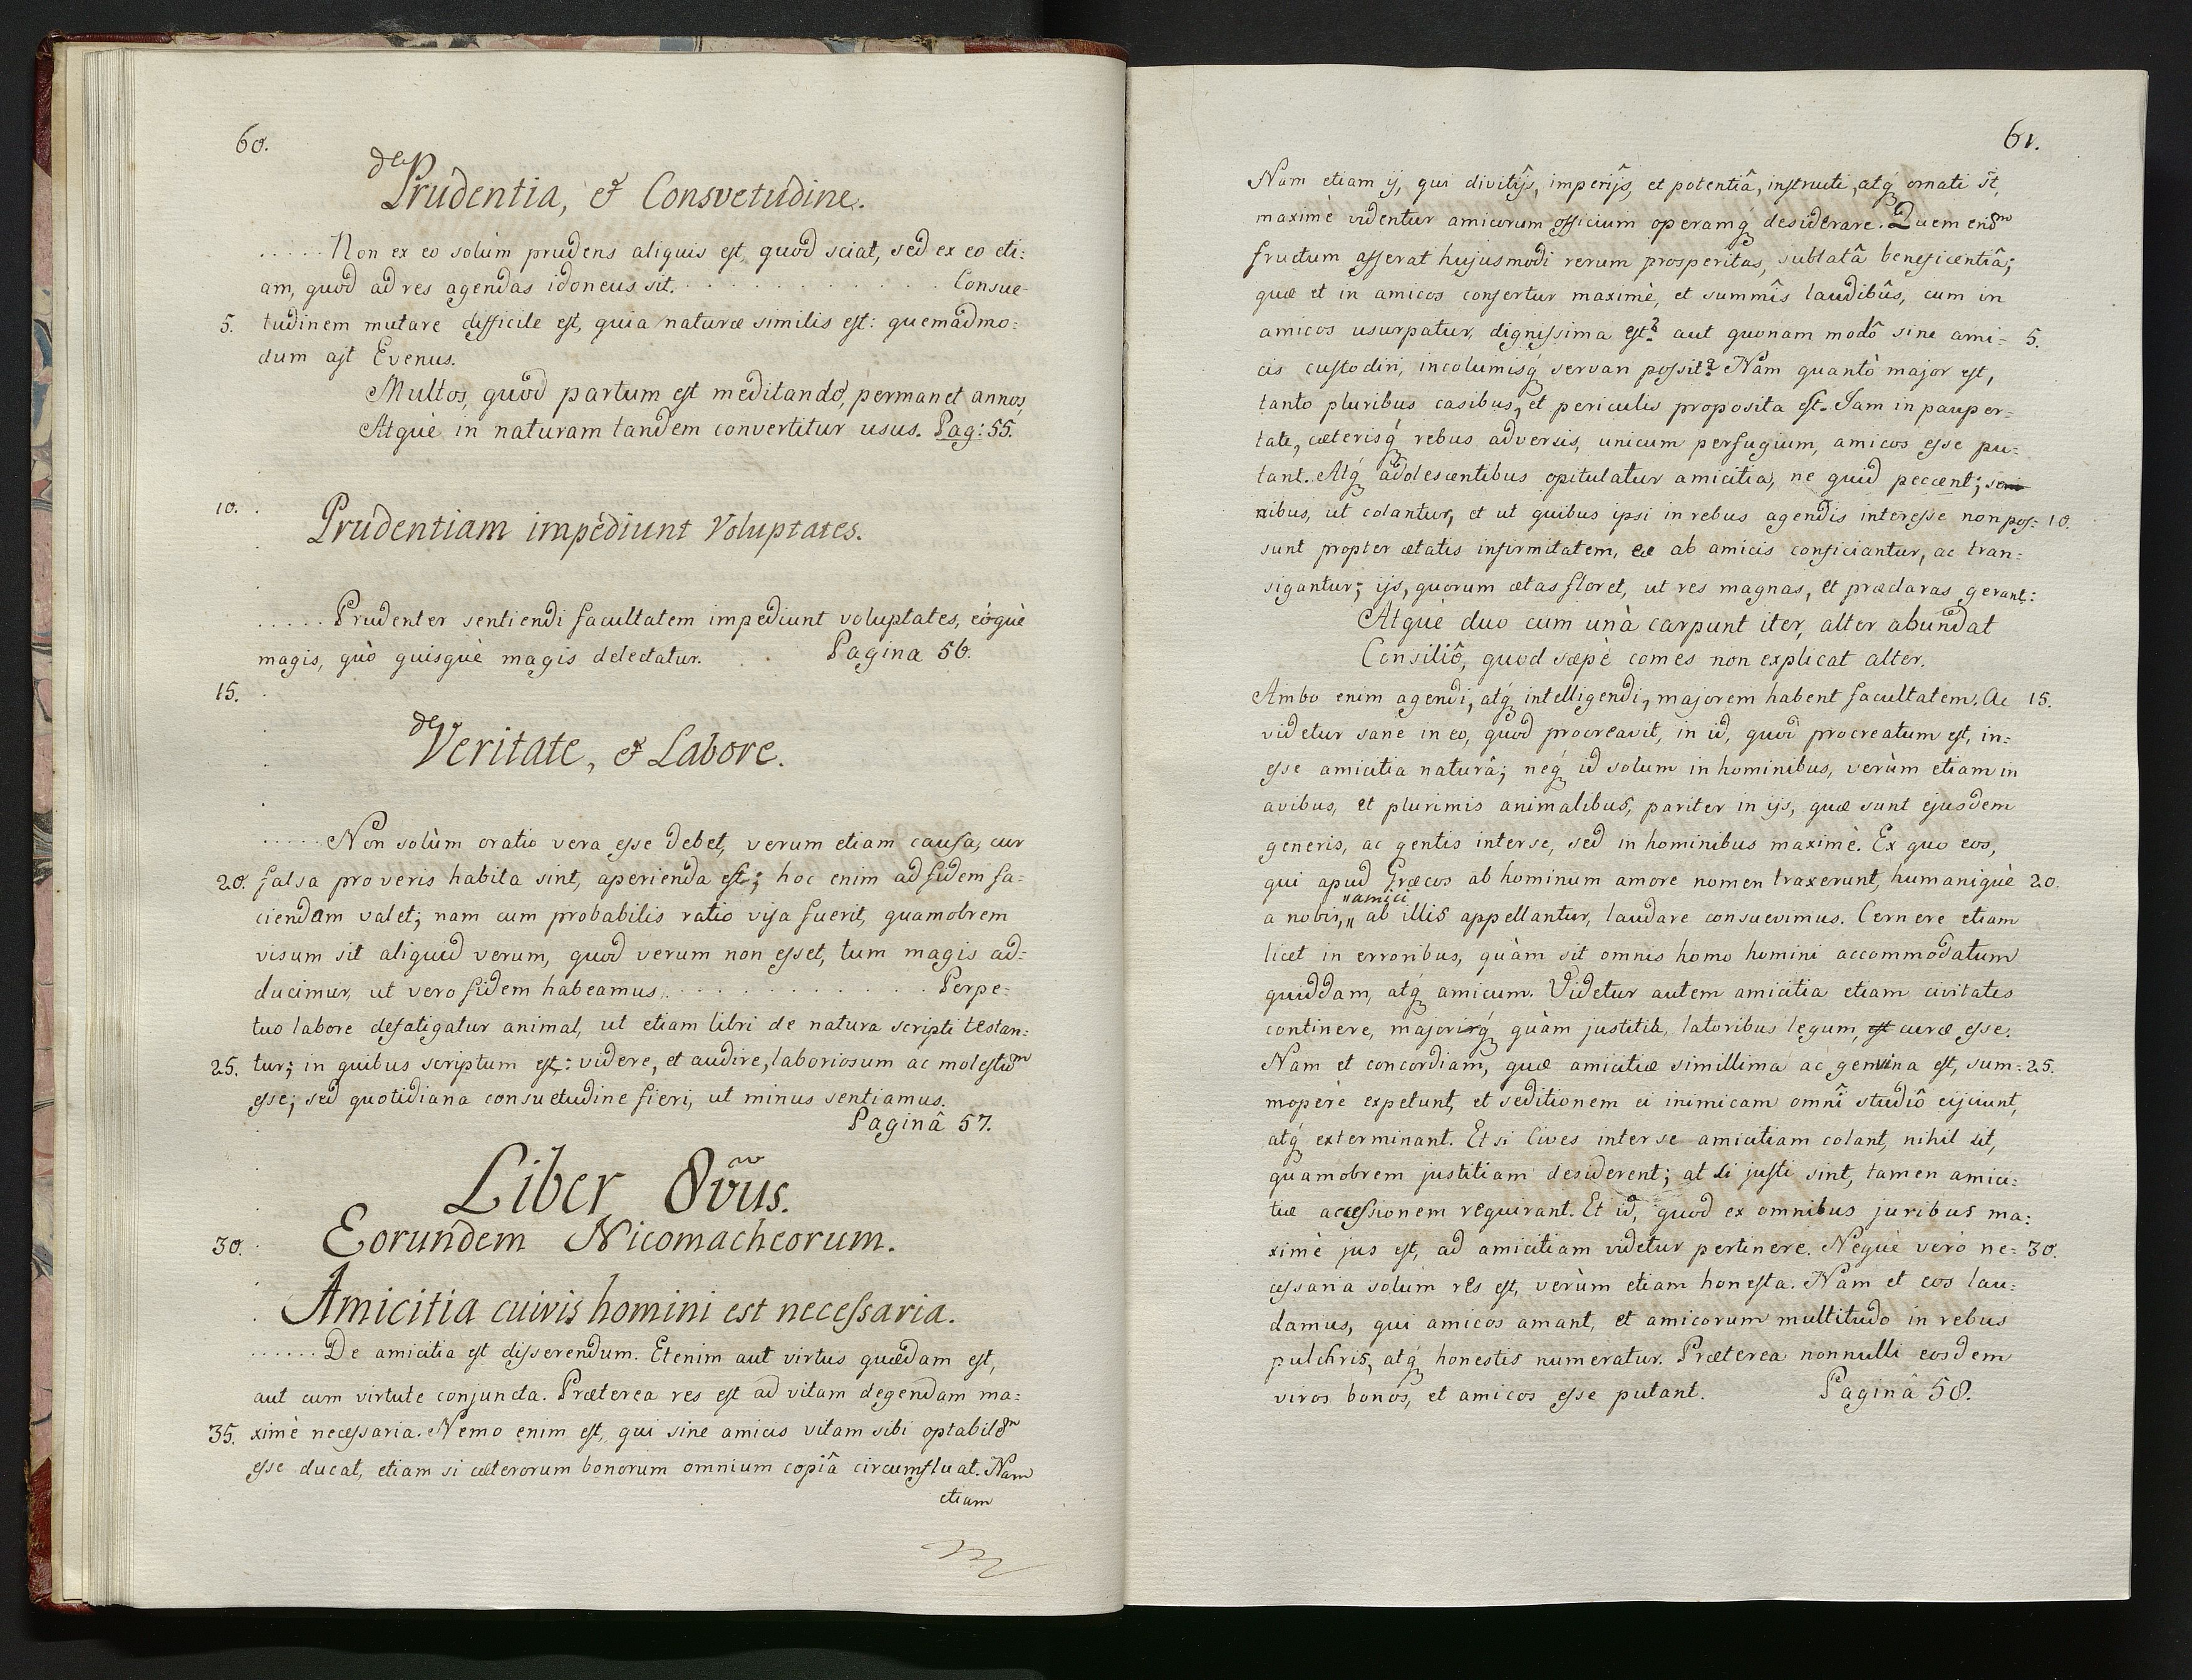 60.
de
Prudentia, & Consvetudine.
.....Non ex eo solùm prudens aliquis est, quod sciat, sed ex eo eti:
am, quod ad res agendas idoneus sit. . . . . . . . . . . . . Consue-
5. tudinem mutare difficile est, quia naturæ similis est: quemadmo:
dum ajt Evenus.
Multos, quod partum est meditando, permanet annos,
Atquè in naturam tandem convertitur usus. Pag: 55.
10.
Prudentiam impediunt Voluptates.
.....Prudenter sentiendi facultatem impediunt voluptates, eóquè
magis, quò quisquè magis delectatur. . . Pagina 56.
15.
de
Veritate, & Labore.
.....Non solùm oratio vera esse debet, verum etiam causa, cur
20. falsa pro veris habita sint, aperienda est; hoc enim ad fidem fa:
ciendam valet; nam cum probabilis ratio visa fuerit, quamobrem
visum sit aliquid verum, quod verum non esset, tum magis ad:
ducimur, ut vero fidem habeamus. . . . . . . . . . . . . Perpe:
tuo labore defatigatur animal, ut etiam libri de natura scripti testan:
25. tur; in quibus scriptum est: videre, et audire, laboriosum ac molestũm
esse; sed quotidiana consuetudine fieri, ut minus sentiamus.
Paginâ 57.
Liber 8vus.
30. Eorundem Nicomacheorum.
Amicitia cuivis homini est necessaria.
......De amicitia est disserendum. Etenim aut virtus quædam est,
aut cum virtute conjuncta. Præterea res est ad vitam degendam ma:
35. ximè necessaria. Nemo enim est, qui sine amicis vitam sibi optabilem
esse ducat, etiam si cæterorum bonorum omnium copiâ circumfluat. Nam
etiam
61.
Nam etiam ij, qui divitijs, imperijs, et potentiâ, instructi, atq́ ornati st,
maximè videntur amicorum officium operamq́ desiderare. Quem enim
fructum afferat hujusmodi rerum prosperitas, sublatâ beneficentiâ;
quæ et in amicos confertur maximè, et summîs laudibûs, cum in
amicos usurpatur, dignissima est? aut quonam modô sine ami- 5.
cis custodiri, incolumisq́ servari possit? Nam quantò major est,
tanto pluribus casibus, et periculis proposita est. Iam in pauper-
tate, cæterisq́ rebus adversis, unicum perfugium, amicos esse pu:
tant. Atq́ adolescentibus opitulatur amicitia, ne quid peccent; seni
nibus, ut colantur, et ut quibus ipsi in rebus agendis interesse non pos: 10.
sunt propter ætatis infirmitatem, eæ ab amicis conficiantur, ac tran:
sigantur; ijs, quorum ætas floret, ut res magnas, et præclaras gerant:
Atquè duo cum unà carpunt iter, alter abundat
Consiliô, quod sæpè comes non explicat alter.
Ambo enim agendi, atq́ intelligendi, majorem habent facultatem. Ac 15.
videtur sanè in eo, quod procreavit, in id, quod procreatum est, in:
esse amicitia naturâ; neq́ id solum in hominibus, verùm etiam in
avibus, et plurimis animalibus, pariter in ijs, quæ sunt ejusdem
generis, ac gentis interse, sed in hominibus maximè. Ex quo eos,
qui apud Græcos ab hominum amore nomen traxerunt, humaniquè 20.
"amici
a nobis," ab illis appellantur, laudare consuevimus. Cernere etiam
licet in erroribus, quàm sit omnis homo homini accommodatum
quiddam, atq́ amicum. Videtur autem amicitia etiam civitates
continere, majoriq́ quàm justitia, latoribus legum, est curæ esse.
Nam et concordiam, quæ amicitiæ simillima ac genuina est, sum= 25.
moperè expetunt, et seditionem ei inimicam omnî studiô ejiciunt,
atq́ exterminant. Et si Cives inter se amicitiam colant, nihil sit,
quamobrem justitiam desiderent; at si justi sint, tamen amici:
tiæ accessionem requirant. Et id, quod ex omnibus juribus ma:
ximè jus est, ad amicitiam videtur pertinere. Nequè verò ne= 30.
cessaria solùm res est, verùm etiam honesta. Nam et eos lau:
damus, qui amicos amant, et amicorum multitudo in rebus
pulchris, atq́ honestis numeratur. Præterea nonnulli eosdem
viros bonos, et amicos esse putant. Paginâ 58.